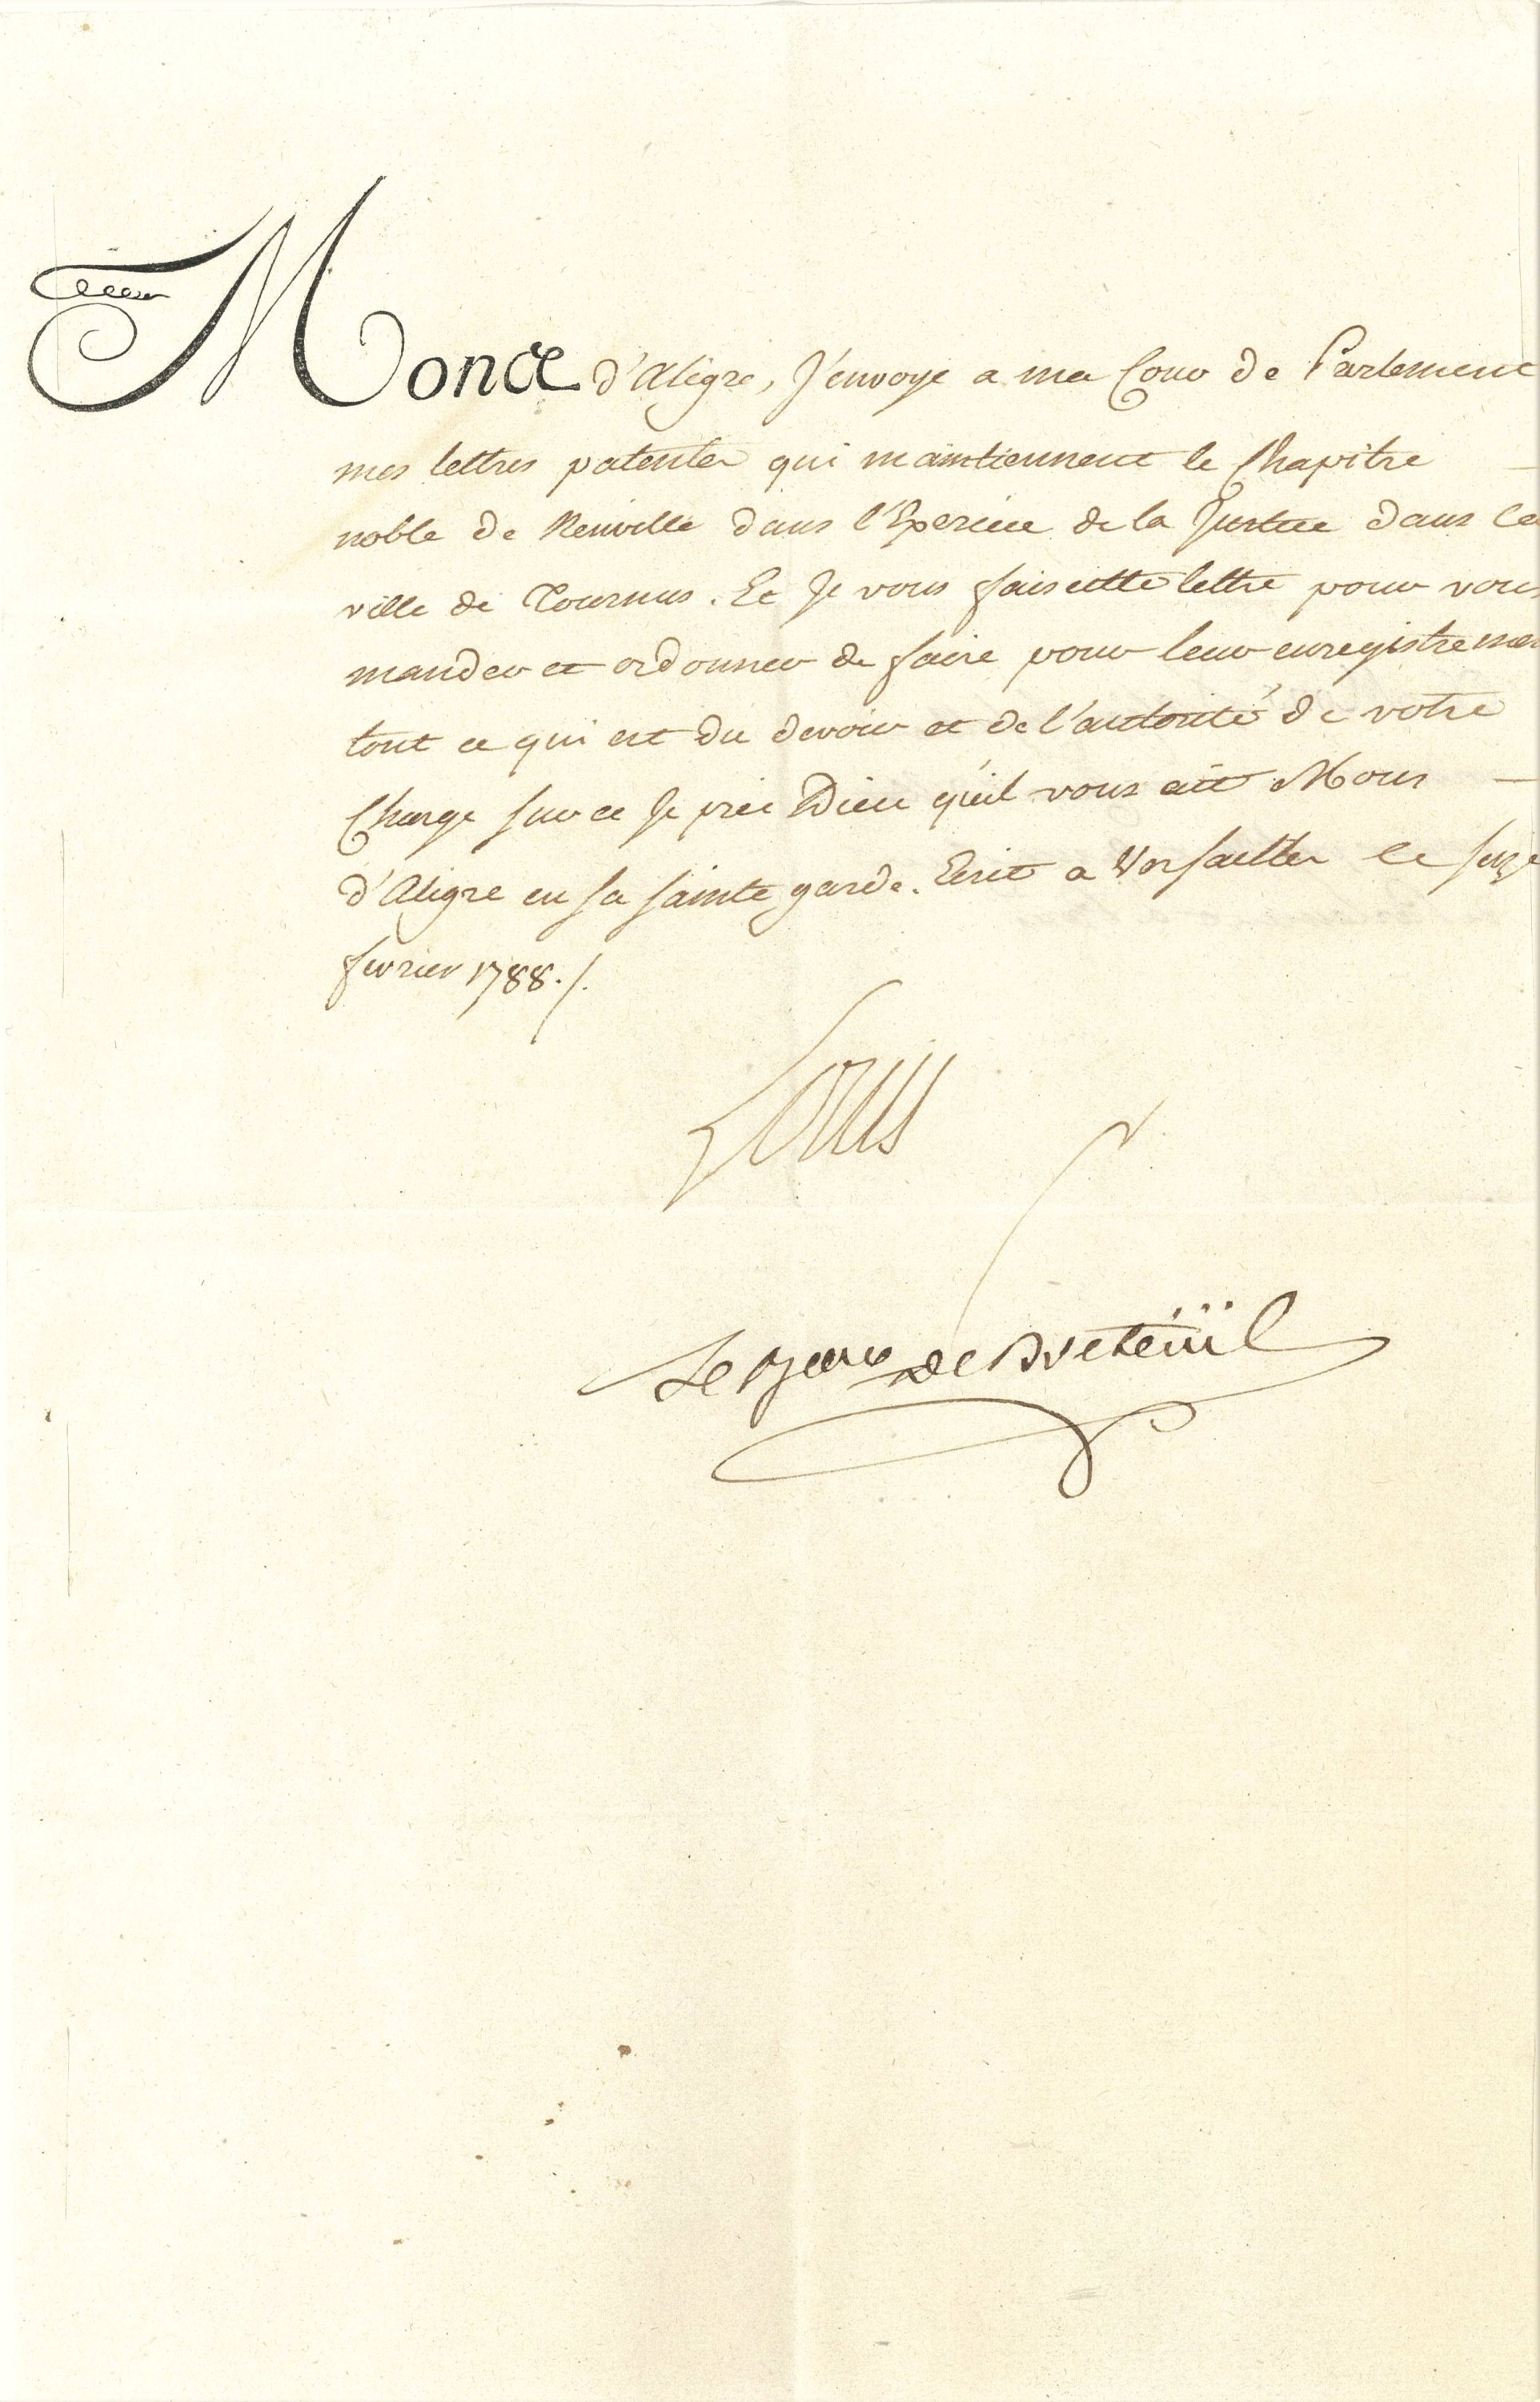 Mons d'Aligre, J'envoye a ma Cour de Parlement
mes lettres patentes qui maintiennent le Chapitre
noble de Neuville dans l'Exercice de la Justice dans la
ville de Tournus. Et Je vous fais cette lettre pour vous
mander et ordonner de faire pour leur enregistremen
tout ce qui est du devoir et de l'autorité de votre
Charge sur ce Je prie Dieu qu'il vous ait Mons
d'Aligre en sa sainte garde. Ecrit a Versailles le seize
fevrier 1788./.
Louis
Le Bon de Breteüil